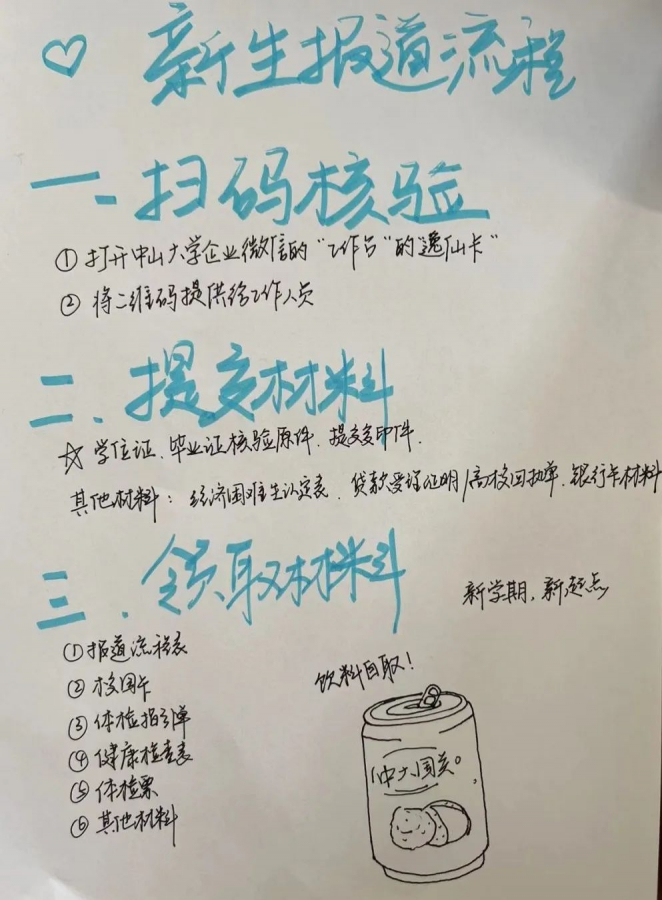 新生报道流程
一、扫码核验
① 打开中山大学企业微信的“工作台”的“逸仙卡”
② 将二维码提供给工作人员
二、提交材料
☆ 学位证、毕业证核验原件、提交复印件.
其他材料：经济困难生认定表、贷款受理证明/高校回执单、银行卡材料
三、领取材料
新学期，新起点
①报道流程表
②校园卡
③体检指引单
④健康检查表
⑤体检票
⑥其他材料
饮料自取！
中大国关。